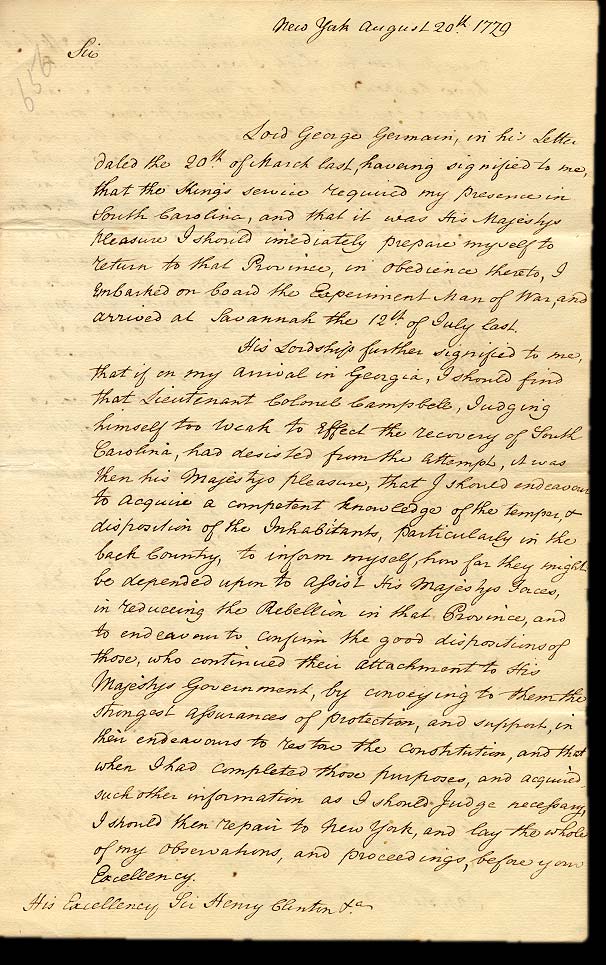 New York August 20th 1779
Sir
Lord George Germain, in his Letter
dated the 20th of March last, haveing signified to me,
that the Kings service required my presence in
South Carolina, and that it was His Majestys
pleasure I should imediately prepare myself to
return to that Province, in obedience thereto, I
Embarked on board the Experiment Man of War, and
arrived at Savannah the 12th of July last.
His Lordship further signified to me,
that if on my arrival in Georgia, I should find
that Lieutenant Colonel Campbell, Judging
himself too weak to Effect the recovery of South
Carolina, had desisted from the attempt, it was
then his Majestys pleasure, that I should endeavour
to acquire a competent knowledge of the temper, &
disposition of the Inhabitants, particularly in the
back Country, to inform myself, how far they might
be depended upon to assist His Majestys Forces,
in reduceing the Rebellion in that Province, and
to endeavour to confirm the good dispositions of
those, who continued their attachment to His
Majestys Government, by conveying to them the
strongest assurances of protection, and support, in
their endeavours to restore the constitution, and that
when I had completed those purposes, and acquired
such other information as I should Judge necessary,
I should then repair to New York, and lay the whole
of my observations, and proceedings, before your
Excellency.
His Excellency Sir Henry Clinton &ca